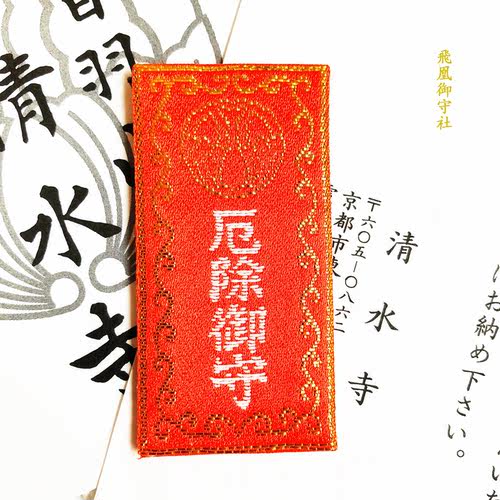 音羽山
清水寺
厄除御守
飛凰御守社
〒六〇五-〇八六二
京都市東
清水寺
にお納め下さい。